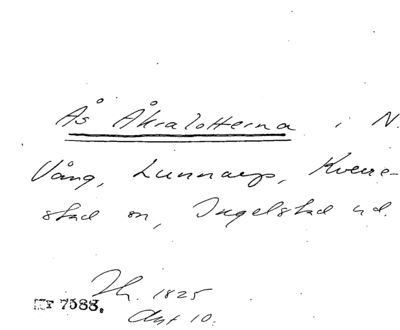 Ås Åkralotterna i N.
Vång, Lunnarp, Kverre-
stad sn, Ingelstad hd.
Jh. 1825
Akt 10.
Nr 7588.